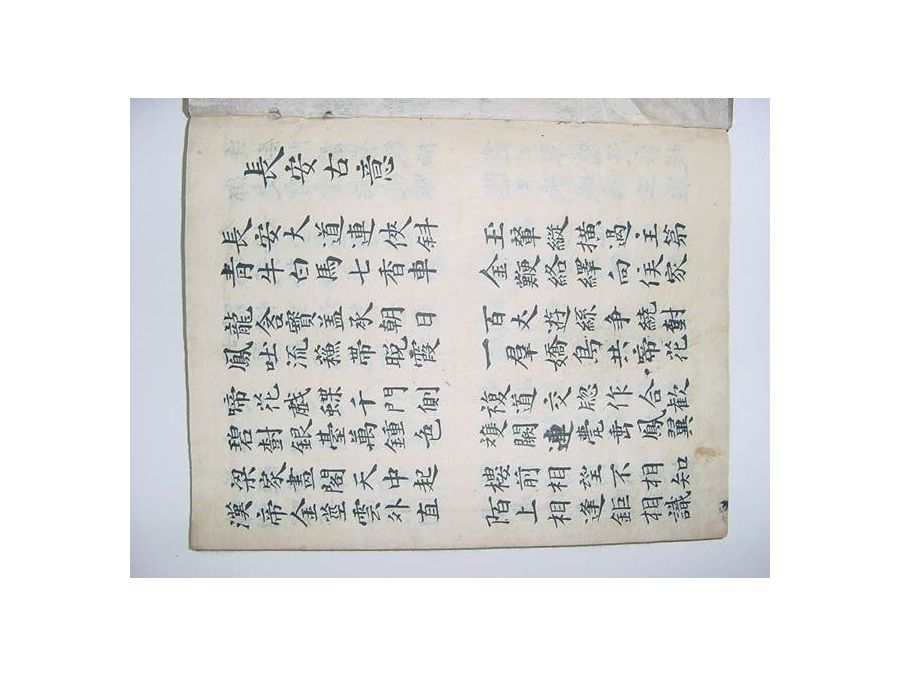 長安古意
長安大道連俠斜
青牛白馬七香車
玉輦縱橫過主第
金鞭絡繹向侯家
龍含寶盖承朝日
鳳吐流蘓帶晚霞
百丈遊絲爭繞樹
一羣嬌鳥共啼花
啼花戲蝶千門側
碧樹銀臺萬鍾色
複道交窓作合歡
雙關連甍垂鳳翼
梁家畫閣天中起
漢帝金莖雲外直
樓前相望不相知
陌上相逢鉅相識